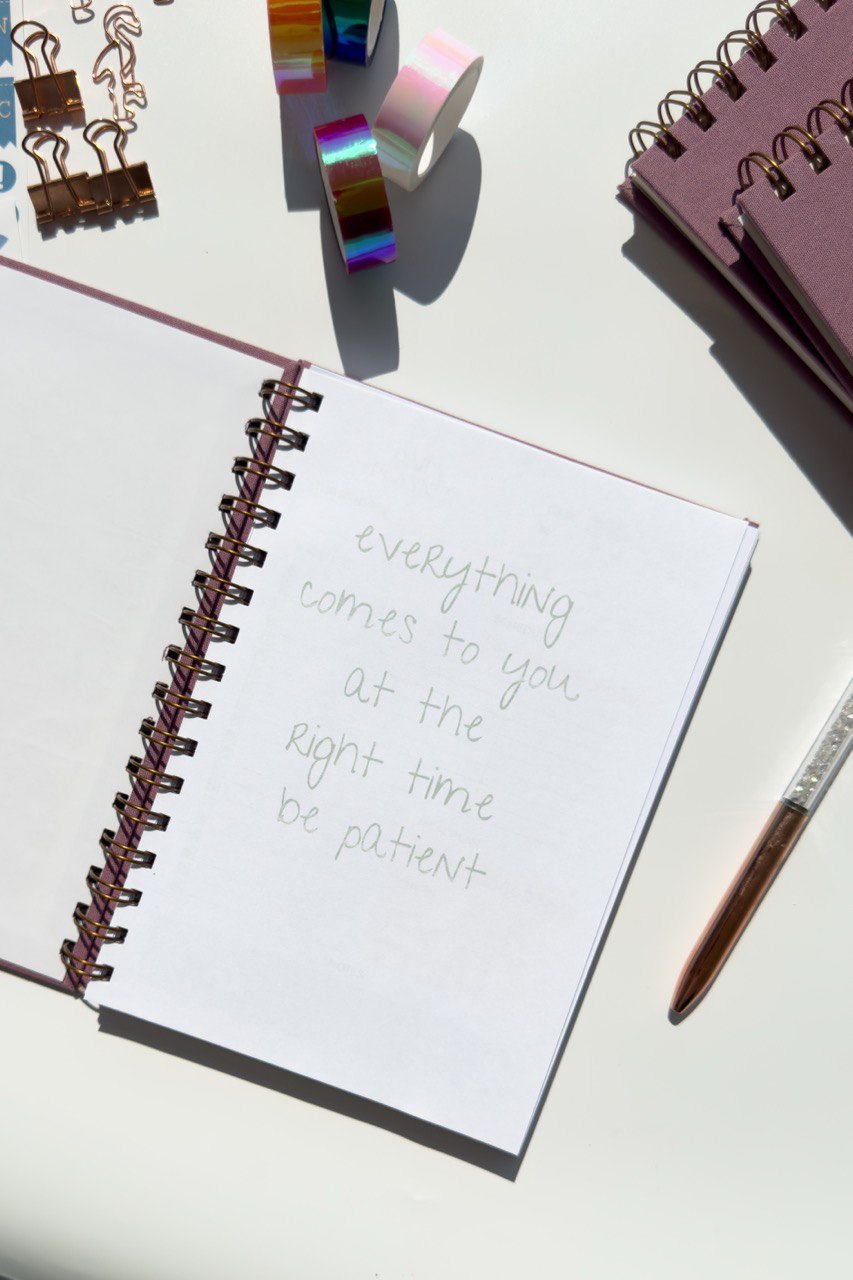 N
C
!
everything
comes to you
at the
Right time
be patient